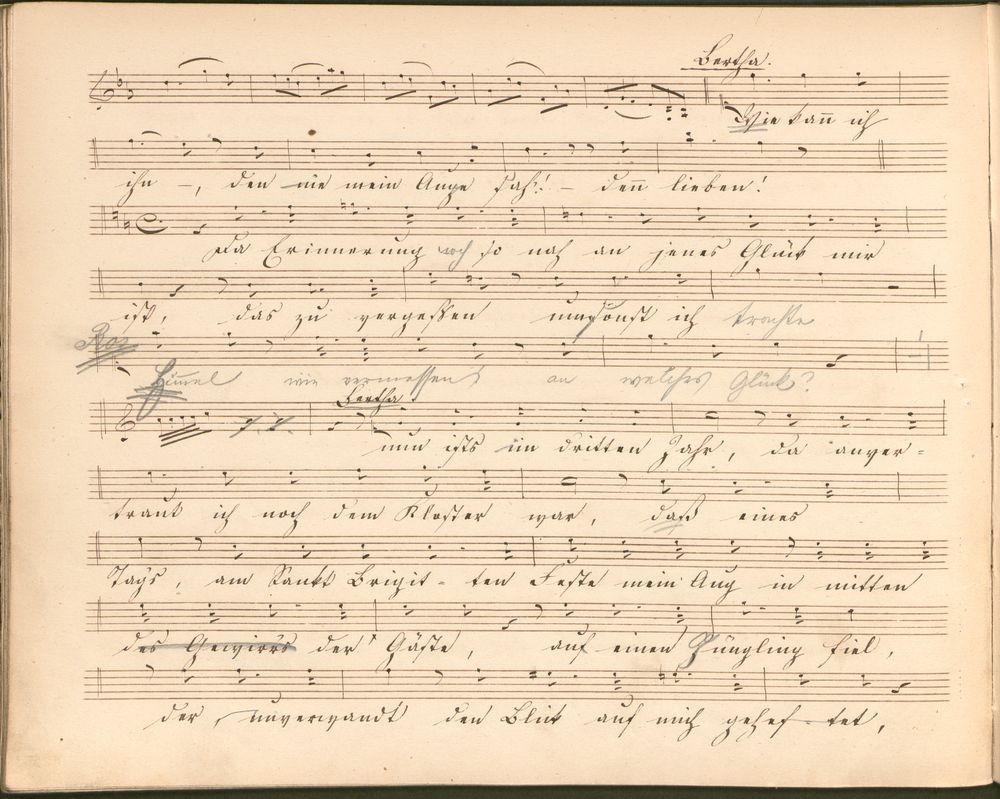 Bertha.
Wie kan̄ ich
ihn –, den nie mein Auge sah! – den̄ lieben!
Da Erinnerung noch so nah an jenes Glück mir
ist, das zu vergessen umsonst ich trachte
Ros
Him̄el wie vermessen an welches Glück?
Bertha
nun ists im dritten Jahr, da anver=
traut ich noch dem Kloster war, daß eines
Tags, am Sankt Brigit= ten Feste mein Aug in mitten
des Gewirrs der Gäste, auf einen Jüngling fiel,
der, unverwandt den Blick auf mich gehef= tet,